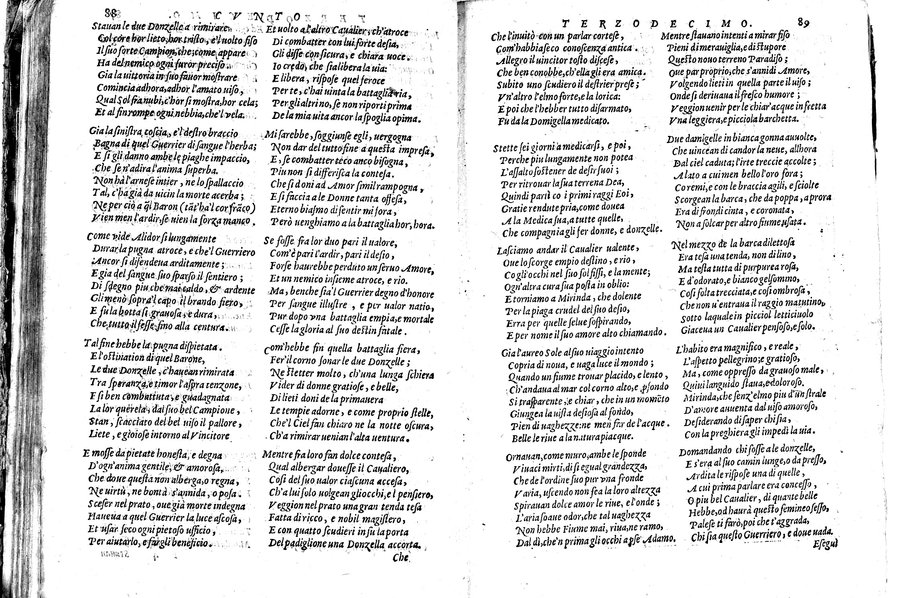 88
CVNTO
Stauan le due Donzelle a rimirare
Col core hor lieto, hor tristo, e'l volto fiso
Il suo forte Campion, che, come appare
Ha del nemico ogni furor preciso.
Gia la uittoria in suo fauor mostrare
Comincia adhora, adhor l'amato uiso,
Qual Sol fra nubi, c'hor si mostra, hor cela;
Et al fin rompe ogni nebbia, che'l vela.
Gia la sinistra coscia, e'l destro braccio
Bagna di quel Guerrier di sangue l'herba;
E si gli danno ambe le piaghe impaccio,
Che se n'adira l'anima superba.
Non hà l'arnese intier, ne lo spallaccio
Tal, c'hà già da uicin la morte acerba;
Ne per ciò a q̃l Baron (tãt'ha'l cor frãco)
Vien men l'ardir, se uien la forza manco.
Come vide Alidor si lungamente
Durar la pugna atroce, e che'l Guerriero
Ancor si difendeua arditamente;
E gia del sangue suo sparso il sentiero;
Di sdegno piu che mai caldo, & ardente
Gli menò sopra'l capo il brando fiero,
E fu la botta si grauosa, e dura,
Che, tutto il fesse, fino alla centura.
Tal fine hebbe la pugna dispietata.
E l'ostination di quel Barone,
Le due Donzelle, c'hauean rimirata
Tra speranza, e timor l'aspra tenzone,
E si ben combattuta, e guadagnata
La lor querela, dal suo bel Campione,
Stan, scacciato del bel uiso il pallore,
Liete, e gioiose intorno al Vincitore
E mosse da pietate honesta, e degna
D'ogn'anima gentile, & amorosa,
Che doue questa non alberga, o regna,
Ne uirtù, ne bontà s'annida, o posa.
Sceser nel prato, oue già morte indegna
Haueua a quel Guerrier la luce ascosa,
Et usar seco ogni pietoso ufficio,
Per aiutarlo, e fargli beneficio.
Et uolto a l'altro Caualier, ch'atroce
Di combatter con lui forte desia,
Gli disse con sicura, e chiara uoce.
Io credo, che sia libera la uia:
E libera, rispose quel feroce
Per te, c'hai uinta la battaglia ria,
Per gli altri no, se non riporti prima
De la mia uita ancor la spoglia opima.
Mi sarebbe, soggiunse egli, uergogna
Non dar del tutto fine a questa impresa,
E, se combatter teco anco bisogna,
Piu non si differisca la contesa.
Che si doni ad Amor simil rampogna,
E si faccia a le Donne tanta offesa,
Eterno biasmo di sentir mi fora,
Però uenghiamo a la battaglia hor, hora.
Se fosse fra lor duo pari il ualore,
Com'è pari l'ardir, pari il desio,
Forse haurebbe perduto un seruo Amore,
Et un nemico insieme atroce, e rio.
Ma, benche sia'l Guerrier degno d'honore
Per sangue illustre, e per ualor natio,
Pur dopo vna battaglia empia, e mortale
Cesse la gloria al suo destin fatale.
Com'hebbe fin quella battaglia fiera,
Fer'il corno sonar le due Donzelle;
Ne stetter molto, ch'una lunga schiera
Vider di donne gratiose, e belle,
Di lieti doni de la primauera
Le tempie adorne, e come proprio stelle,
Che'l Ciel fan chiaro ne la notte oscura,
Ch'a rimirar uenian l'alta uentura.
Mentre fra loro fan dolce contesa,
Qual albergar douesse il Caualiero,
Cosi del suo valor ciascuna accesa,
Ch'a lui solo uolgean gliocchi, e'l pensiero,
Veggion nel prato una gran tenda tesa
Fatta di ricco, e nobil magistero,
E con quattro scudieri in su la porta
Del padiglione una Donzella accorta.
Che
TERZODECIMO.
89
Che l'inuitò con un parlar cortese,
Com'habbia seco conoscenza antica.
Allegro il uincitor tosto discese,
Che ben conobbe, ch'ella gli era amica.
Subito uno scudiero il destrier prese;
Vn'altro l'elmo forte, e la lorica:
E poi che l'hebber tutto disarmato,
Fu da la Domigella medicato.
Stette sei giorni a medicarsi, e poi,
Perche piu lungamente non potea
L'assalto sostener de desir suoi;
Per ritrouar la sua terrena Dea,
Quindi partì co i primi raggi Eoi,
Gratie rendute pria, come douea
A la Medica sua, a tutte quelle,
Che compagnia gli fer donne, e donzelle.
Lasciamo andar il Caualier ualente,
Que lo scorge empio destino, e rio,
Co gli occhi nel suo sol fissi, e la mente;
Ogn'altra cura sua posta in oblio:
E torniamo a Mirinda, che dolente
Per la piaga crudel del suo desio,
Erra per quelle selue sospirando,
E per nome il suo amore alto chiamando.
Gia l'aureo Sole al suo uiaggio intento
Copria di noua, e uaga luce il mondo;
Quando un fiume trouar placido, e lento,
Ch'andaua al mar col corno alto, e profondo
Si trasparente, e chiar, che in un momẽto
Giungea la uista desiosa al fondo,
Pien di uaghezze: ne men far de l'acque.
Belle le riue a la natura piacque.
Ornauan, come muro, ambe le sponde
Viuaci mirti, di si egual grandezza,
Che de l'ordine suo pur vna fronde
Varia, uscendo non fea la loro altezza
Spirauan dolce amor le riue, e l'onde;
L'aria soaue odor, che tal uaghezza
Non hebbe Fiume mai, riua, ne ramo,
Dal dì, che'n prima gli occhi aperse Adamo.
Mentre stauano intenti a mirar fiso
Pieni di merauiglia, e di stupore
Questo nouo terreno Paradiso;
Oue par proprio, che s'annidi Amore,
Volgendo lieti in quella parte il uiso;
Onde si deriuaua il fresco humore;
Veggion uenir per le chiar'acque in fretta
Vna leggiera, e picciola barchetta.
Due damigelle in bianca gonna auuolte,
Che uincean di candor la neue, allhora
Dal ciel caduta; l'irte treccie accolte;
A lato a cui men bello l'oro fora;
Co remi, e con le braccia agili, e sciolte
Scorgean la barca, che da poppa, a prora
Era di fiondi cinta, e coronata,
Non a solcar per altro fiume usata.
Nel mezzo de la barca dilettosa
Era tesa una tenda, non di lino,
Ma testa tutta di purpurea rosa,
E d'odorato, e bianco gelsommo,
Cosi folta trecciata, e cosi ombrosa,
Che non u'entraua il raggio matutino,
Sotto laquale in picciol letticiuolo
Giaceua un Caualier pensoso, e solo.
L'habito era magnifico, e reale,
L'aspetto pellegrino; e gratioso,
Ma, come oppresso da grauoso male,
Quiui languido staua, e doloroso.
Mirinda, che senz'elmo piu d'un strale
D'amore auuenta dal uiso amoroso,
Desiderando di saper chi sia,
Con la preghiera gli impedì la uia.
Domandando chi fosse a le donzelle,
E s'era al suo camin lunge, o da presso,
Ardita le rispose una di quelle,
A cui prima parlare era concesso,
O piu bel Caualier, di quante belle
Hebbe, od haurà questo femineo sesso,
Palese ti farò, poi che t'aggrada,
Chi sia questo Guerriero, e doue uada.
Esegui